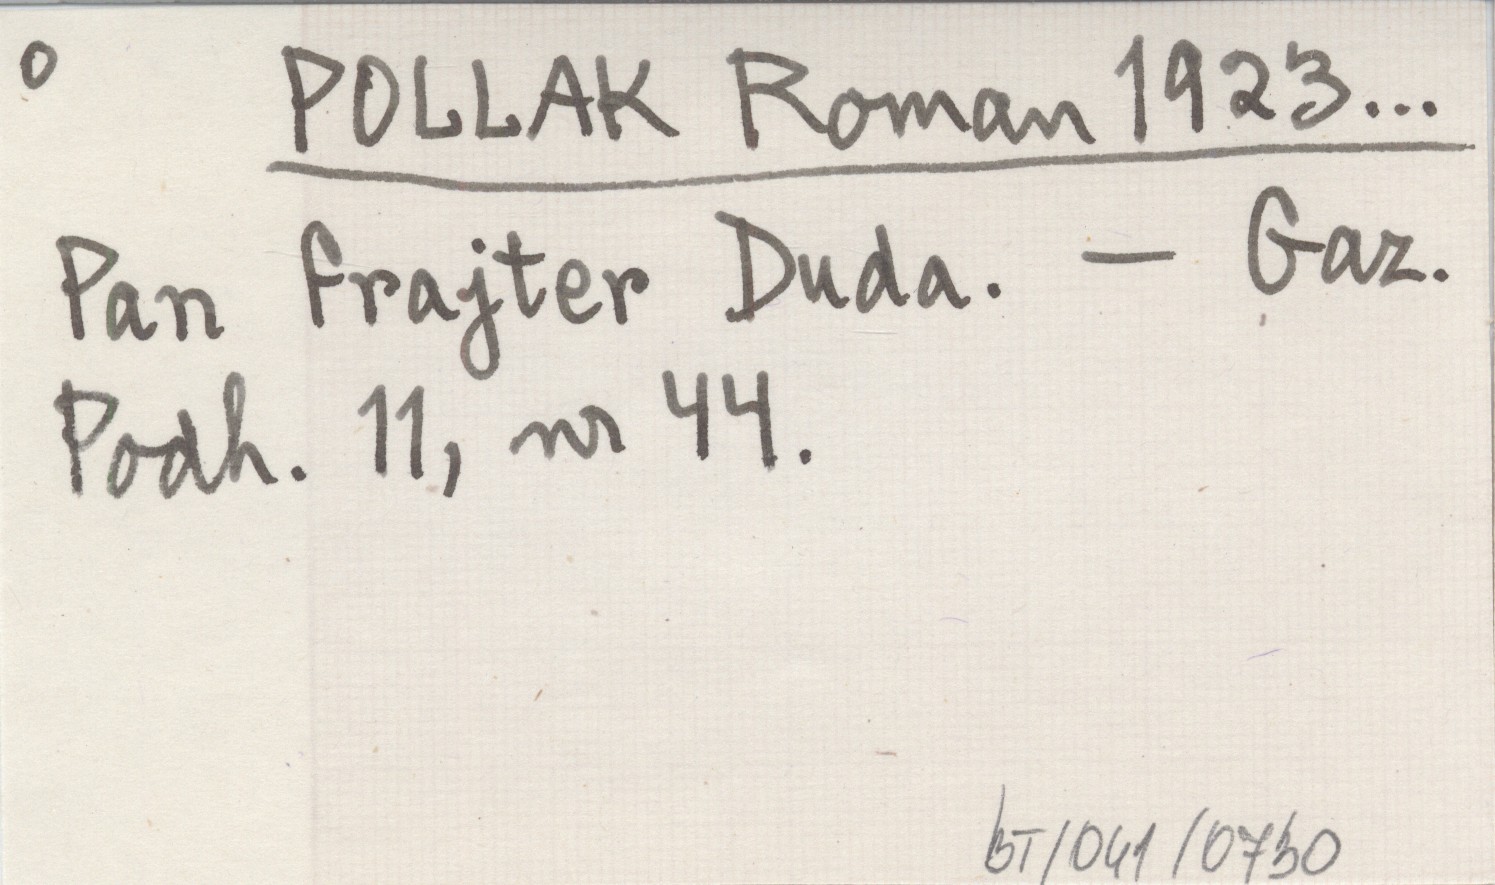 o POLLAK Roman 1923...
Pan frajter Duda. — Gaz.
Podh. 11, nr 44.
bT/041/0730